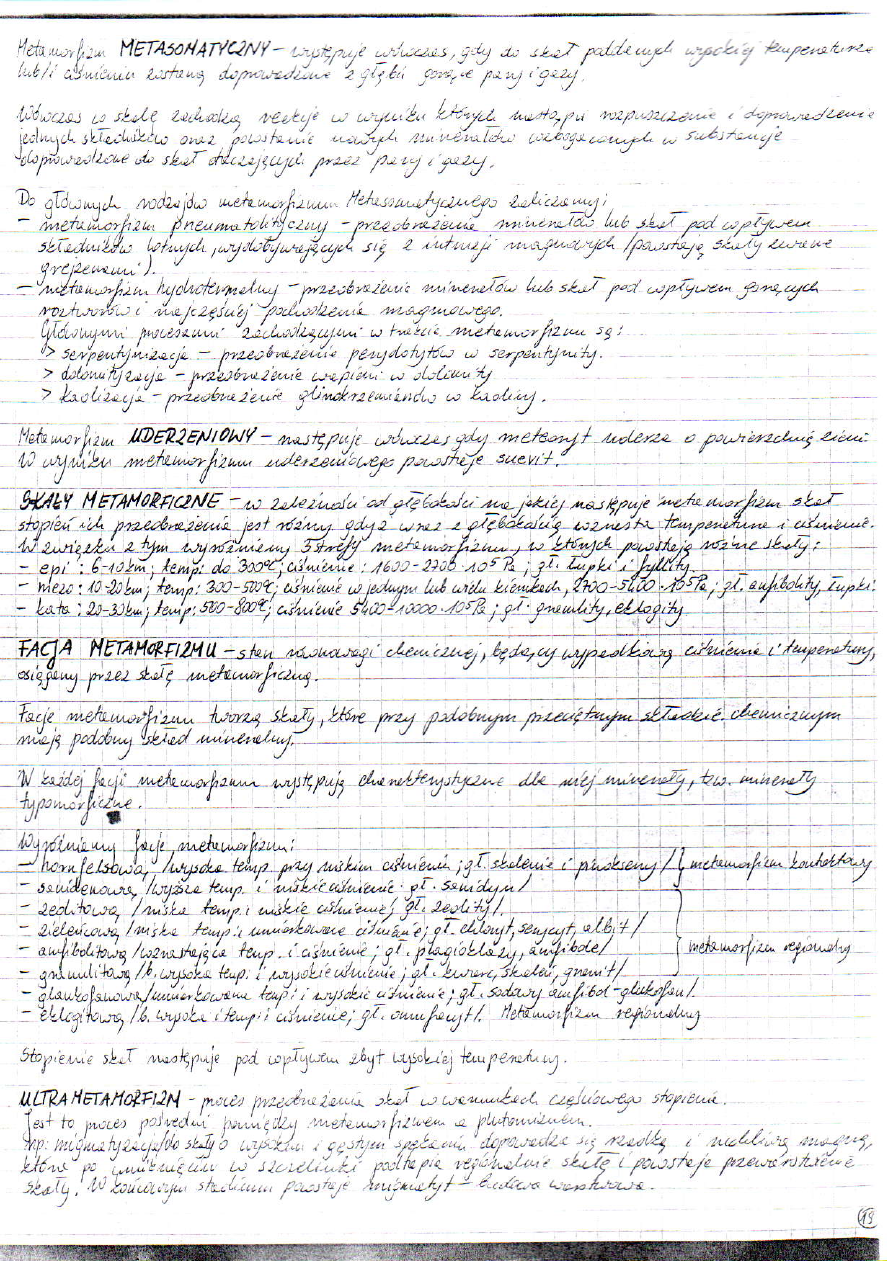 Metamorfizm METASOMATYCZNY – występuje wówczas, gdy do skał poddanych wysokiej temperaturze
lub/i ciśnieniu zostaną doprowadzone z głębi gorące pary i gazy.
Wówczas w skale zachodzą reakcje w wyniku których nastąpi rozpuszczenie i doprowadzenie
jednych składników oraz powstanie nowych minerałów wzbogaconych w substancje
doprowadzone do skał otaczających przez pary i gazy.
Do głównych rodzajów metamorfizmu Metasomatycznego zaliczamy:
– metamorfizm pneumatolityczny – przeobrażenie minerałów lub skał pod wpływem
składników lotnych, wydobywających się z intruzji magmowych /powstają skały zwane
grejzenami/.
– metamorfizm hydrotermalny – przeobrażenie minerałów lub skał pod wpływem gorących
roztworów i najczęściej pochodzenia magmowego.
Głównymi procesami zachodzącymi w trakcie metamorfizmu są:
> serpentynizacja – przeobrażenie perydotytów w serpentynity.
> dolomityzacja – przeobrażenie wapieni w dolomity
> kaolizacja – przeobrażenie glinokrzemianów w kaoliny.
Metamorfizm UDERZENIOWY – następuje wówczas gdy meteoryt uderza o powierzchnię ziemi.
W wyniku metamorfizmu uderzeniowego powstaje suevit.
SKAŁY METAMORFICZNE – w zależności od głębokości na jakiej następuje metamorfizm skał
stopień ich przeobrażenia jest różny gdyż wraz z głębokością wzrasta temperatura i ciśnienie.
W związku z tym wyróżniamy 3 strefy metamorfizmu, w których powstają różne skały:
– epi : 6-10km; temp: do 300°C; ciśnienie: 1600-2700·10⁵Pa; gł. łupki i fyllity.
– mezo: 10-20km; temp: 300-500°C; ciśnienie w jednym lub wielu kierunkach, 2700-5400·10⁵Pa; gł. amfibolity, łupki.
– kata: 20-30km; temp: 500-800°C; ciśnienie 5400-10000·10⁵Pa; gł. granulity, eklogity
FACJA METAMORFIZMU – stan równowagi chemicznej, będący wypadkową ciśnienia i temperatury,
osiągany przez skałę metamorficzną.
Facje metamorfizmu tworzą skały, które przy podobnym przeciętnym składzie chemicznym
mają podobny skład mineralny.
W każdej facji metamorfizmu występują charakterystyczne dla niej minerały, tzw. minerały
typomorficzne.
Wyróżniamy facje metamorfizmu:
– hornfelsową /wysoka temp. przy niskim ciśnieniu; gł. skalenie i pirokseny/ } metamorfizm kontaktowy
– sanidynową /wyższa temp. i niskie ciśnienie gł. sanidyn/
– zeolitową /niska temp. i niskie ciśnienie; gł. zeolity/.
– zieleńcową /niska temp. i umiarkowane ciśnienie; gł. chloryt, serycyt, albit/
– amfibolitową /wzrastająca temp. i ciśnienie; gł. plagioklazy, amfibole/ } metamorfizm regionalny
– granulitową /b. wysoka temp. i wysokie ciśnienie; gł. kwarc, skaleń, granit/
– glaukofanową /umiarkowana temp i wysokie ciśnienie; gł. sodowy amfibol-glaukofan/.
– eklogitową /b. wysoka i temp i ciśnienie; gł. omfacyt/. Metamorfizm regionalny
Stopienie skał następuje pod wpływem zbyt wysokiej temperatury.
ULTRAMETAMORFIZM – proces przeobrażenia skał w warunkach częściowego stopienia.
Jest to proces pośredni pomiędzy metamorfizmem a plutonizmem.
np: migmatyzacja/do skały o wysokim i gęstym spękaniu doprowadza się rzadką i ruchliwą magmę,
która po wniknięciu w szczelinki podtapia regionalnie skałę i powstaje przewarstwienie
skały. W końcowym stadium powstaje migmatyt – budowa warstwowa.
19